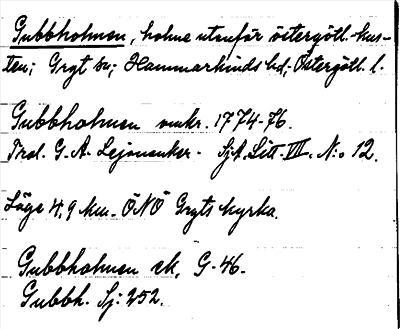 Gubbholmen, holme utanför östergötl. kus-
ten; Gryt sn; Hammarkinds hd; Östergötl. l.
Gubbholmen omkr. 1774-76.
Fred. G. A. Lejonanker. Sj.A. Litt. VIII. N:o 12.
Läge 4,9 km. ÖNÖ Gryts kyrka.
Gubbholmen ek, G-46.
Gubbh. Sj: 252.